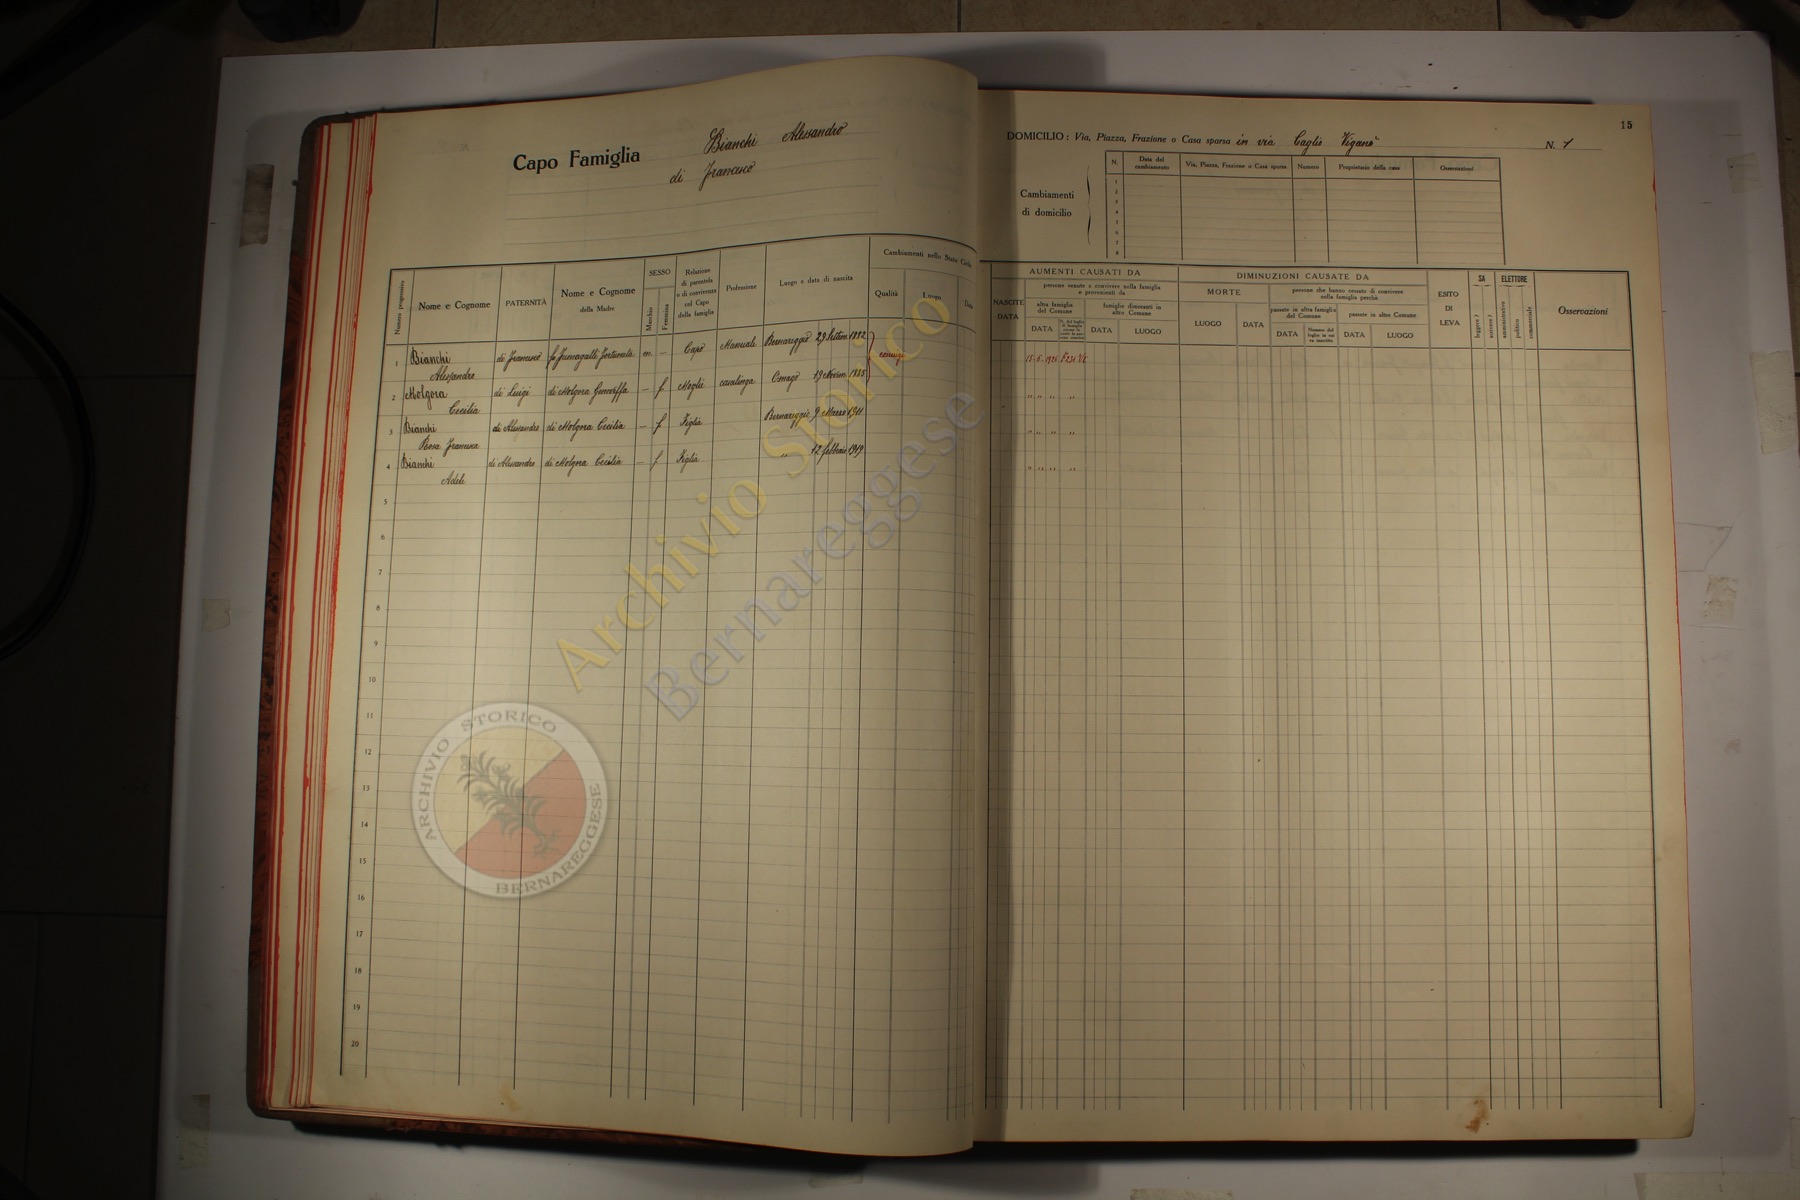 Capo Famiglia
Bianchi Alessandro
di Francesco
15
DOMICILIO: Via, Piazza, Frazione o Casa sparsa in via Caglio Viganò N. 1
Cambiamenti
di domicilio
N.
Data del
cambiamento
Via, Piazza, Frazione o Casa sparsa
Numero
Proprietario della casa
Osservazioni
1
2
3
4
5
6
7
8
Numero progressivo
Nome e Cognome
PATERNITÀ
Nome e Cognome
della Madre
SESSO
Maschio
Femmina
Relazione
di parentela
o di convivenza
col Capo
della famiglia
Professione
Luogo e data di nascita
Cambiamenti nello Stato Civile
Qualità
Luogo
Data
NASCITE
DATA
AUMENTI CAUSATI DA
persone venute a convivere nella famiglia
e provenienti da
altra famiglia
del Comune
DATA
famiglie dimoranti in
altro Comune
DATA
LUOGO
DIMINUZIONI CAUSATE DA
MORTE
LUOGO
DATA
persone che hanno cessato di convivere
nella famiglia perchè
passate in altra famiglia
del Comune
DATA
Numero del
foglio in cui
va inscritta
passate in altro Comune
DATA
LUOGO
ESITO
DI
LEVA
SA
leggere?
scrivere?
ELETTORE
amministrativo
politico
commerciale
Osservazioni
1 Bianchi di Francesco fu Fumagalli Fortunata m. – Capo Manuale Bernareggio 29 Settem. 1882
Alessandro
coniugi
15-6-1921
2 Molgora di Luigi di Molgora Genoveffa – f. Moglie casalinga Osnago 19 Novem. 1885
Cecilia
" " " "
3 Bianchi di Alessandro di Molgora Cecilia – f. Figlia Bernareggio 9 Marzo 1911
Rosa Francesca
" " " "
4 Bianchi di Alessandro di Molgora Cecilia – f. Figlia " 12 febbraio 1919
Adele
" " " "
5
6
7
8
9
10
11
12
13
14
15
16
17
18
19
20
Archivio Storico
Bernareggese
ARCHIVIO STORICO
BERNAREGGESE